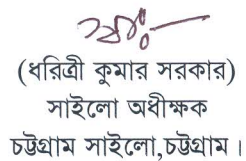 (ধরিত্রী কুমার সরকার)
সাইলো অধীক্ষক
চট্টগ্রাম সাইলো,চট্টগ্রাম।